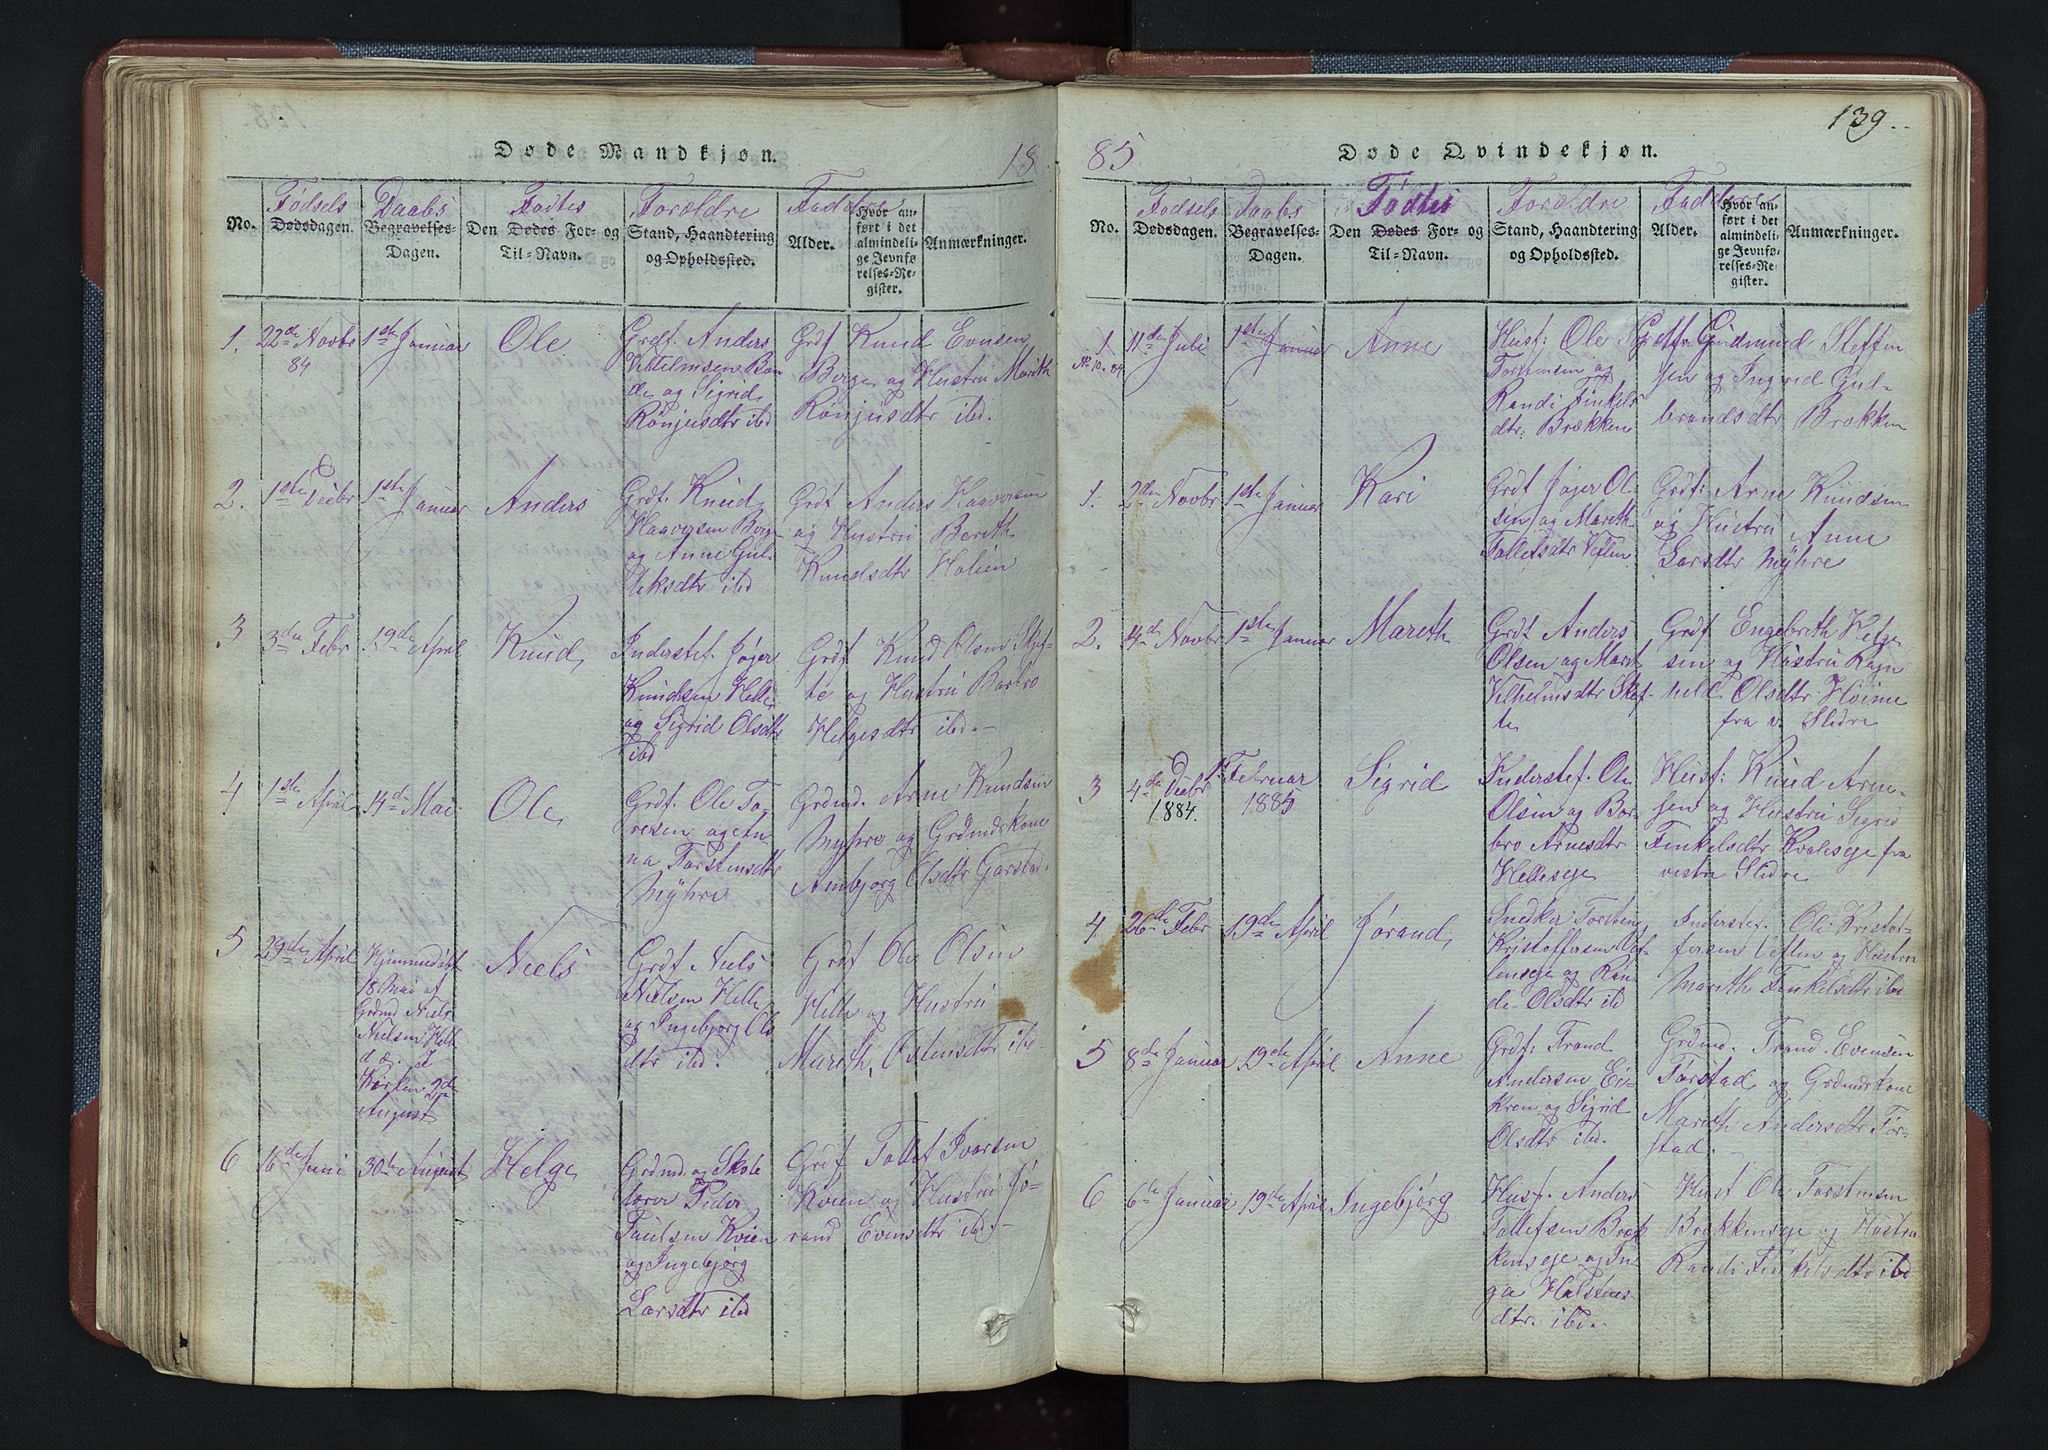 Døde Mandkjøn. 18
No. Fødselsdagen. Daabs Dagen. Den Fødtes For- og Til-Navn. Forældre Faddere Hvor anført i det almindelige Jevnførelses-Register. Anmærkninger.
Dødsdagen. Begravelses- Dødes Stand, Haandtering og Opholdssted. Alder.
1. 22de Novbr 84 1ste Januar Ole
Grdf. Anders
og Sigrid
Rönjusdtr ibd
Grdf Knud Evensen
Berge og Hustru Marith
Rönjusdtr ibd.
2. 1ste Decbr 1ste Januar Anders
Grdf. Knud
Haaversen Berge
og Anne Gul-
leksdtr ibd
Grdf Anders Haaversen
og Hustru Berith
Knudsdtr Holien
3 3die Febr 19de April Knud
Inderstef. Jøger
Knudsen Helle
og Sigrid Olsdtr
ibd
Grdf Knud Olsen Skjef-
te og Hustru Barbro
Helgesdtr ibd.-
4 1ste April 14de Mai Ole
Grdf. Ole To-
resen og An-
na Torstensdtr
Myhre
Grdmd. Arne Knudsen
Myhre og Grdmdskone
Ambjørg Olsdtr Garstad.
5 29de April Hjemmedøbt
18 Mai af
Grdmd Niels
Nielsen Helle
d æ. I
Kirken 2de
August
Niels
Grdf Niels
Nielsen Helle
og Ingebjørg Ols
dtr ibd.
Grdf Ole Olsen
Helle og Hustru
Marith Østensdtr ibd-
6 16de Juni 30te August Helge
Grdmd. og Skole
lærer Peder
Paulsen Kvien
og Ingebjørg
Larsdtr ibd
Grdf Tollef Ivarsen
Kvien og Hustru Jø-
rand Evensdtr ibd.-
85 Døde Qvindekjøn. 139
No. Fødsels Dødsdagen. Daabs Begravelses-Dagen. Den Dødes Fødtes For- og Til-Navn. Forældre Stand, Haandtering og Opholdssted. Faddere Alder. Hvor anført i det almindelige Jevnførelses-Register. Anmærkninger.
1 No 10. 84 11de Juli 1ste Januar Anne
Husf: Ole
Torstensen og
Randi Finkels
dtr: Brækken
Gudmund Steffen
sen og Ingrid Gul-
brandsdtr Brækken
1. 2den Novbr 1ste Januar Kari
Grdf Jøger Ol
sen og Marith
Tollefsdtr Veflen
Grdf: Arne Knudsen
og Hustru Anne
Larsdtr Myhre
2. 14de Novbr 1ste Januar Mareth
Grdf Anders
Olsen og Marit
Vilhelmsdtr Skjef
te
Grdf Engebreth Helge
sen og Hustru Ragn
hild Olsdtr Høime
fra v. Slidre
3 4de Decbr 1884. 1. Februar 1885 Sigrid
Inderstef. Ole
Olsen og Bar
bro Arnesdtr
Helleseje
Husf: Knud Arne-
sen og Hustru Sigrid
Finkelsdtr Kvaleseje fra
vestre Slidre
4 26de Febr 19de April Jørand
Snedker Torsten
Kristoffersen Vef-
lenseje og Ran
di Olsdtr ibd
Inderstef. Ole Kristof-
fersen Veflen og Hustru
Marith Finkelsdtr ibd
5 8de Januar 19de April Anne
Grdf: Trond
Andersen Ei-
kren og Sigrid
Olsdtr ibd.
Grdmd. Trond Evensen
Torstad og Grdmdskone
Marith Andersdtr Tor-
stad.-
6 6te Januar 19de April Ingebjørg
Husf. Anders
Tollefsen Bræk
kenseje og In
ga Halstens
dtr. ibd.-
Husf Ole Torstensen
Brækkenseje og Hustru
Randi Finkelsdtr ibd